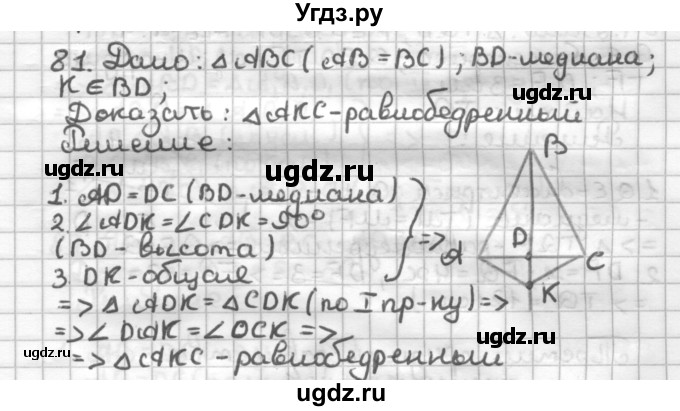 Угдз.ру
81. Дано: △ABC (AB = BC); BD-медиана;
K ∈ BD;
Доказать: △AKC - равнобедренный
Решение:
ugudz.ru
1. AD = DC (BD-медиана)
2. ∠ADK = ∠CDK = 90°
(BD - высота)
3. DK - общая
=>
=> △ADK = △CDK (по I пр-ку) =>
=> ∠DAK = ∠DCK =>
=> △AKC - равнобедренный
B
D
A
C
K
ugdz.ru
ugdz.ru
ugdz.ru
ugdz.ru
ugdz.ru
ugdz.ru
ugdz.ru